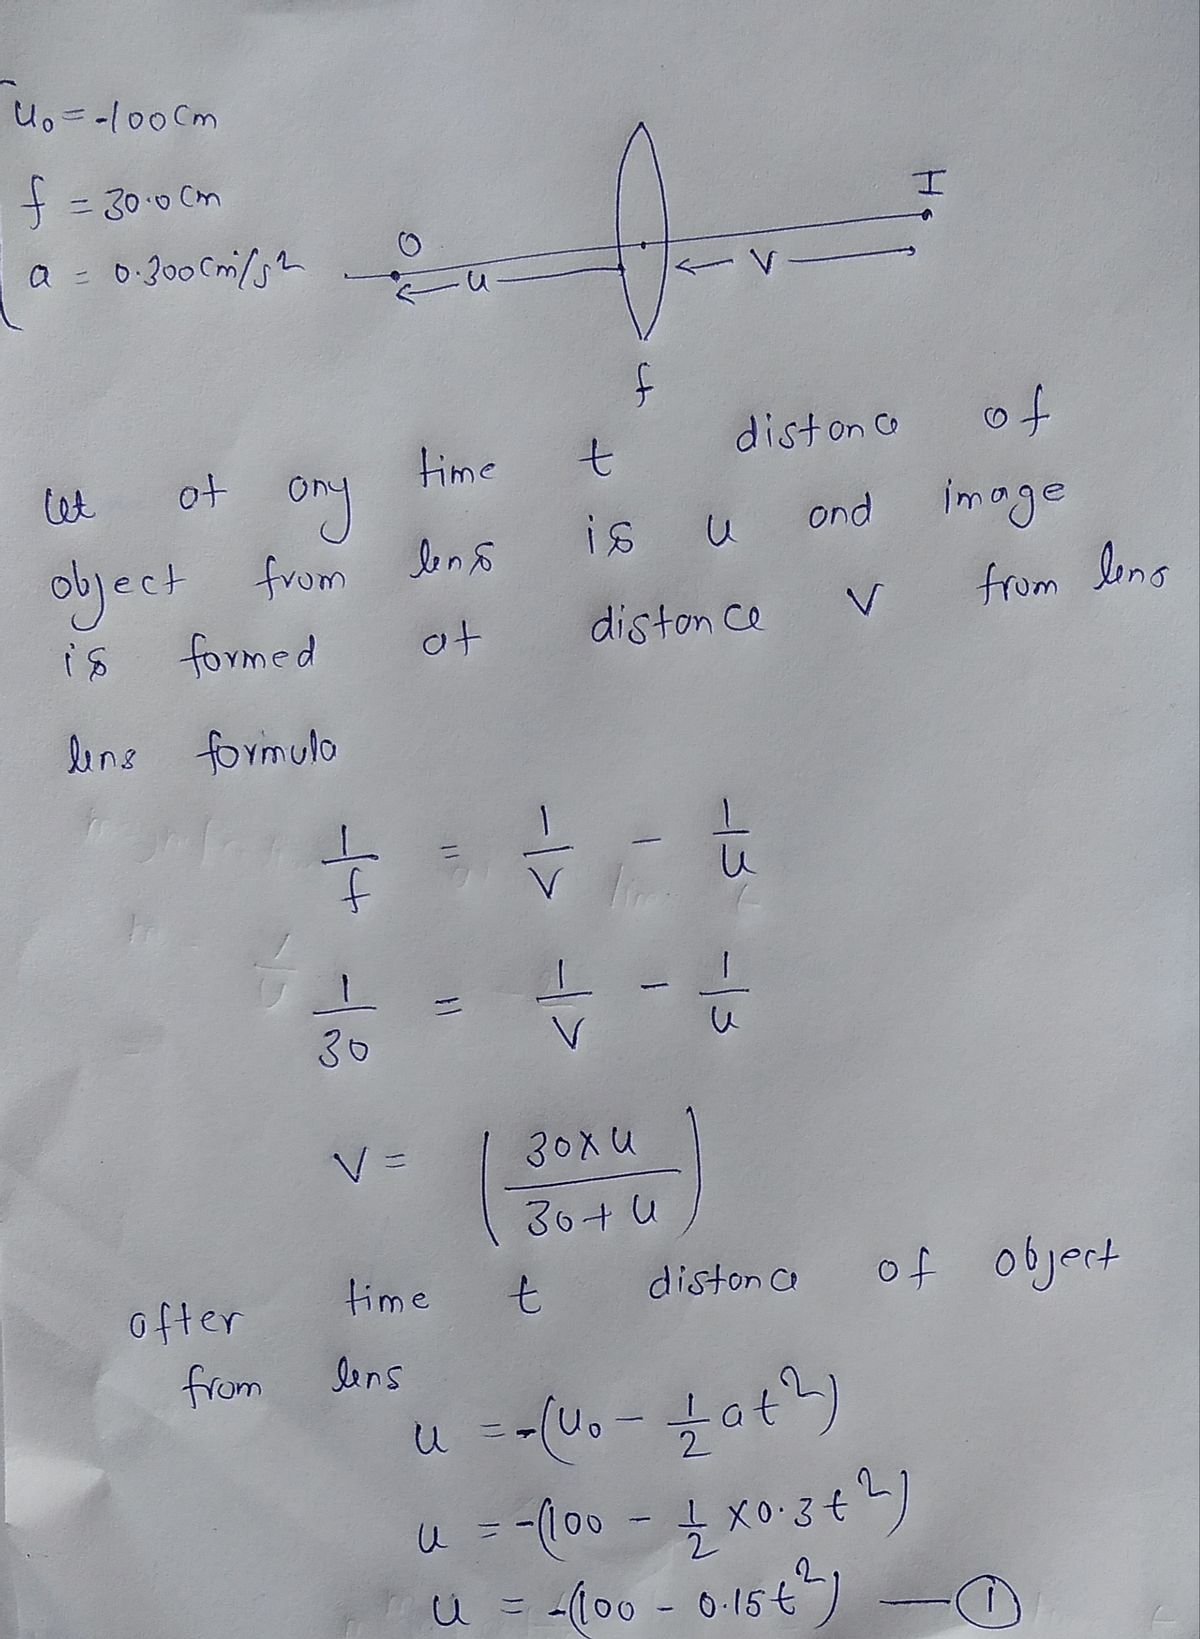 u₀ = -100 cm
f = 30.0 cm
a = 0.300 cm/s²
O
I
u
v
f
let at any time t distance of
object from lens is u and image
is formed at distance v from lens
lens formula
1/f = 1/v - 1/u
1/30 = 1/v - 1/u
v = (30×u / 30+u)
after time t distance of object
from lens
u = -(u₀ - 1/2 at²)
u = -(100 - 1/2 × 0.3t²)
u = -(100 - 0.15t²) — ①